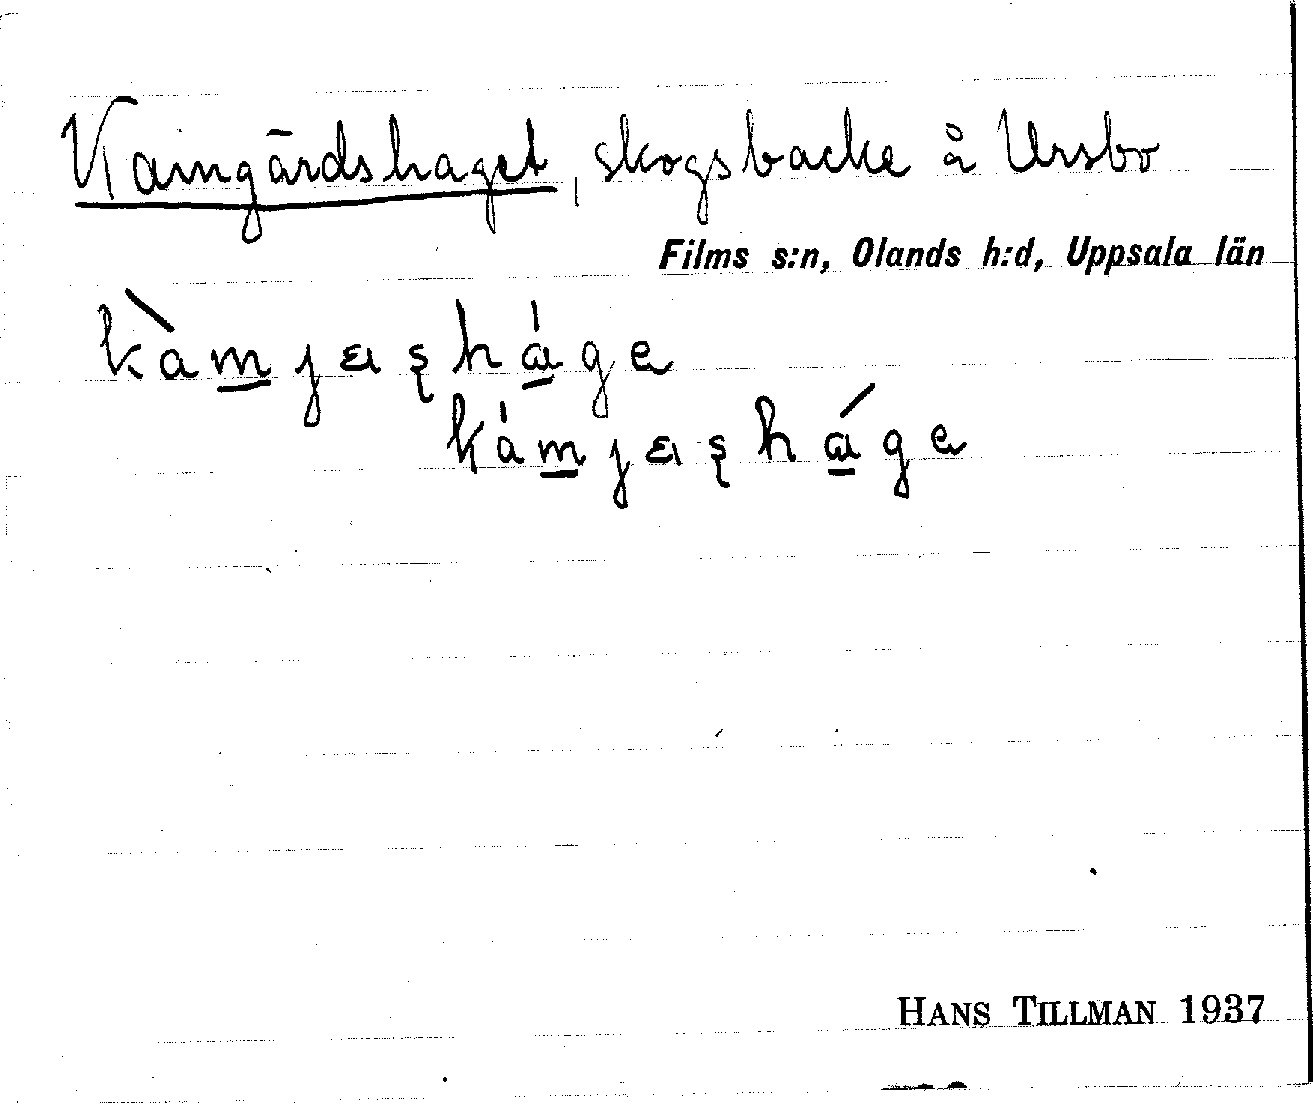 Kamgärdshaget, skogsbacke å Ursbo
Films s:n, Olands h:d, Uppsala län
kàmjɛʂháge
kámjɛʂháge
HANS TILLMAN 1937